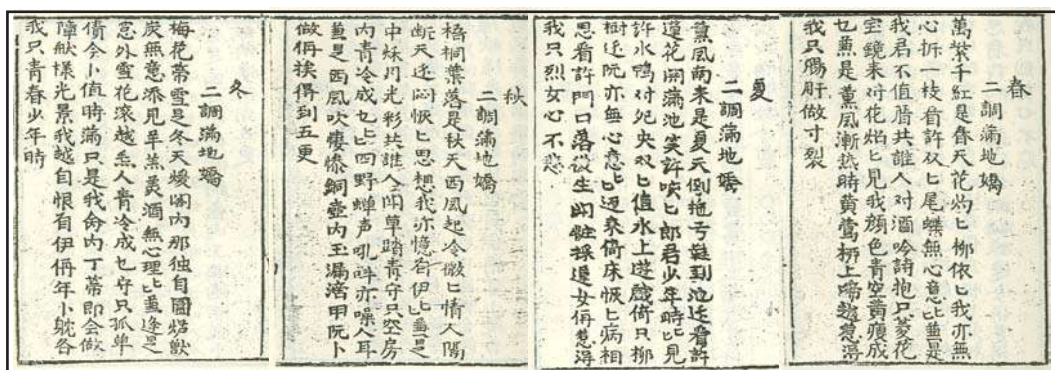 春
二調滿地嬌
萬紫千紅是春天花灼匕柳依匕我亦無
心折一枝看許双匕尾蝶無心意匕並是
我君不值腊共誰人对酒吟詩抱只菱花
宝鏡来对花焰匕見我顔色青空黄瘦成
乜焦是薰風漸热時黄鶯柳上啼越惹得
我只腸肝做寸裂
夏
二調滿地嬌
薰風南来是夏天倒拖弓鞋到池边看許
蓮花開滿池笑許吱匕郎君少年時匕見
許水鴨对央双匕值水上遊戲倚只柳
樹边阮亦無心意匕返来倚床恢匕病相
思看許門口落生閑採退女俩惹得
我只烈女心不悲
秋
二調滿地嬌
梧桐葉落是秋天西風起冷微匕情人隔
断天边悶恢匕思想我亦憶君伊匕並是
中秋月光彩共誰人閗草踏青守只空房
内青冷成乜匕四野蝉声吼咩亦噪人耳
並是西風吹悽慘銅壺内玉漏滴甲阮卜
做俩挨得到五更
冬
二調滿地嬌
梅花帶雪是冬天煖閣内那独自圍焰獣
炭無意添見羊羔美酒無心理匕並逢是
意外雪花滾越無人青冷成乜守只孤单
倩今卜值時滿只是我命内丁蒂即会做
障獣樣光景我越自恨看伊俩年小躭各
我只青春少年時